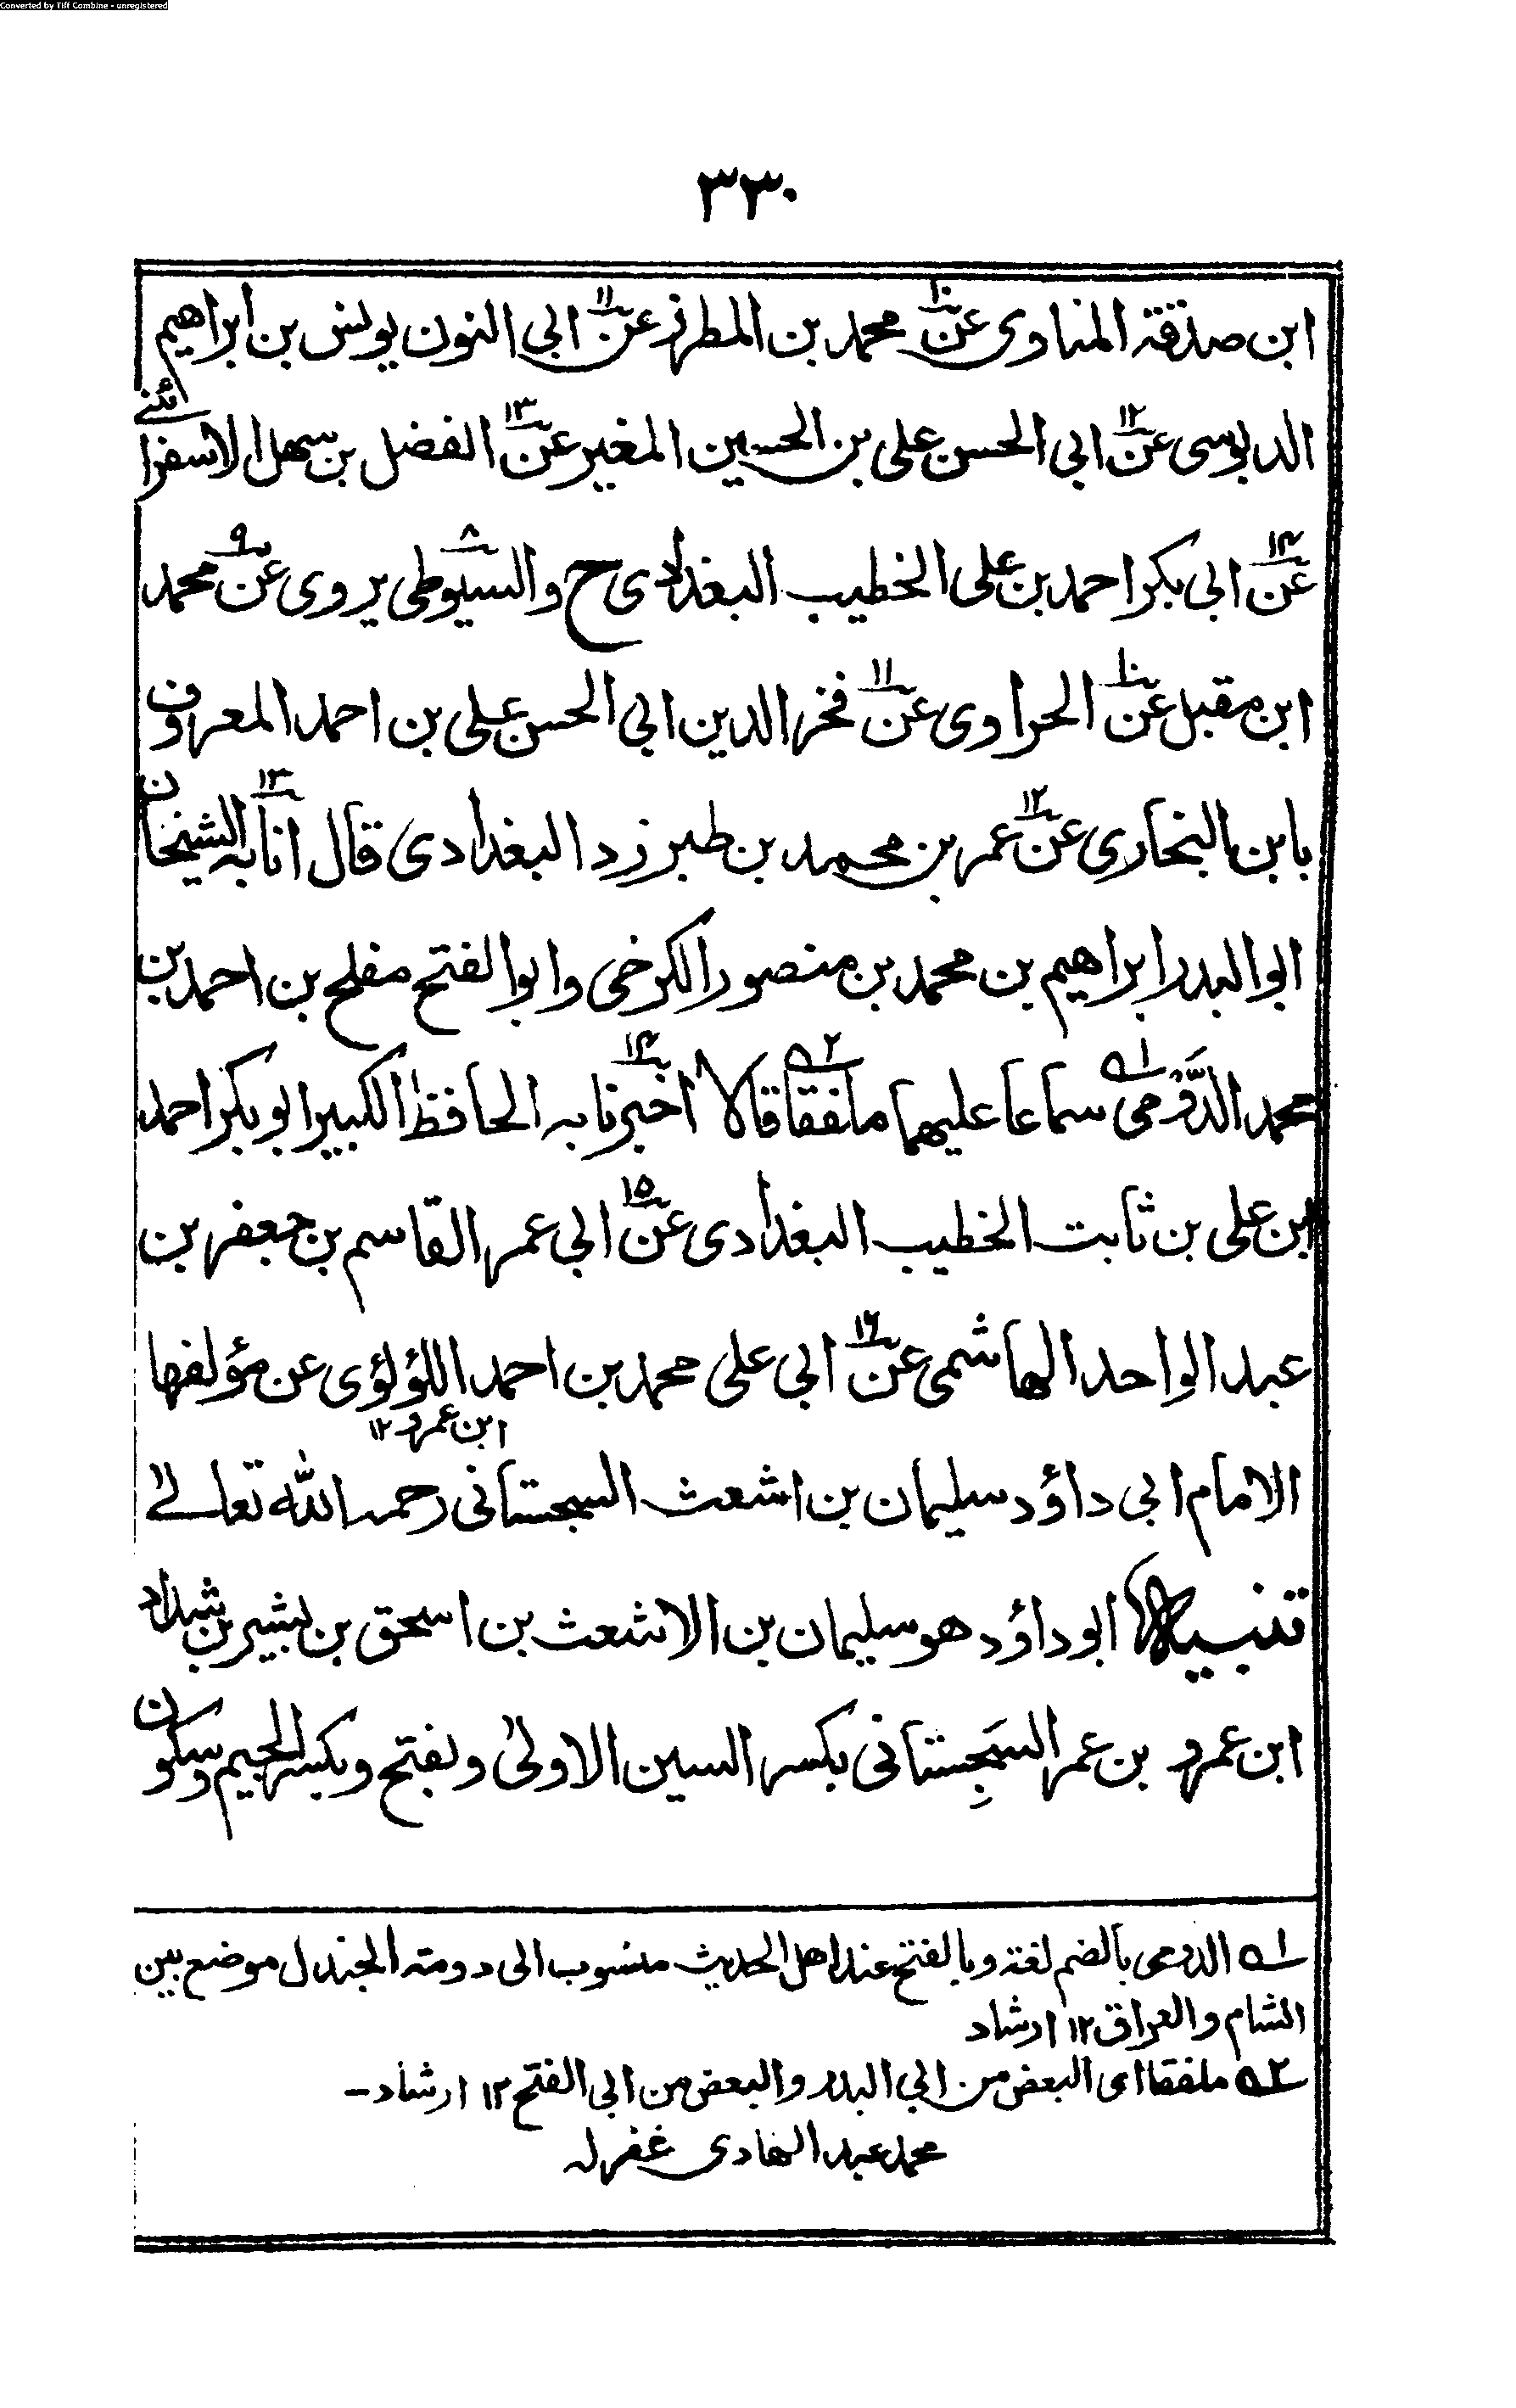 Converted by Tiff Combine - unregistered
٣٣٠
ابن صدقة المناوى عن١٠ محمد بن المطرز عن١١ ابي النون يونس بن ابراهيم
الدبوسى عن١٢ ابي الحسن على بن الحسين المغير عن١٣ الفضل بن سهل الاسفرائنے
عن١٤ ابي بكر احمد بن على الخطيب البغدادى ح والسيوطى٨ يروى عن٩ محمد
ابن مقبل عن١٠ الحراوى عن١١ فخر الدين ابي الحسن على بن احمد المعروف
بابن البخارى عن١٢ عمر بن محمد بن طبرزد البغدادى قال انا١٣ به الشيخان
ابو البدر ابراهيم بن محمد بن منصور الكرخى وابو الفتح مفلح بن احمد بن
محمد الدَّوْمى ١ه سماعا عليهما ملفقا ٢ه قالا اخبرنا١٤ به الحافظ الكبير ابو بكر احمد
ابن على بن ثابت الخطيب البغدادى عن١٥ ابي عمر القاسم بن جعفر بن
عبد الواحد الهاشمى عن١٦ ابي على محمد بن احمد اللؤلؤى عن مؤلفها
ابن عمرو ١٢
الامام ابي داؤد سليمان بن اشعث السجستانى رحمه الله تعالے
تنبيه ابو داؤد هو سليمان بن الاشعث بن اسحق بن بشير بن شداد
ابن عمرو بن عمر السَجِستانى بكسر السين الاولىٰ وبفتح وبكسر الجيم وسكون
١ه الدومى بالضم لغة وبالفتح عند اهل الحديث منسوب الى دومة الجندل موضع بين
الشام والعراق ١٢ ارشاد
٢ه ملفقا اى البعض من ابي البدر والبعض من ابي الفتح ١٢ ارشاد –
محمد عبد الهادى غفرله